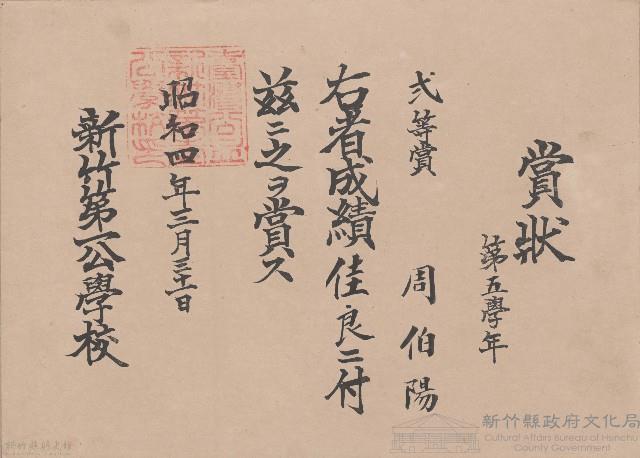 賞狀
第五學年
弍等賞 周伯陽
右者成績佳良ニ付
茲ニ之ヲ賞ス
昭和四年三月三十一日
新竹第一公學校
新竹縣政府文化局
Cultural Affairs Bureau of Hsinchu
County Government